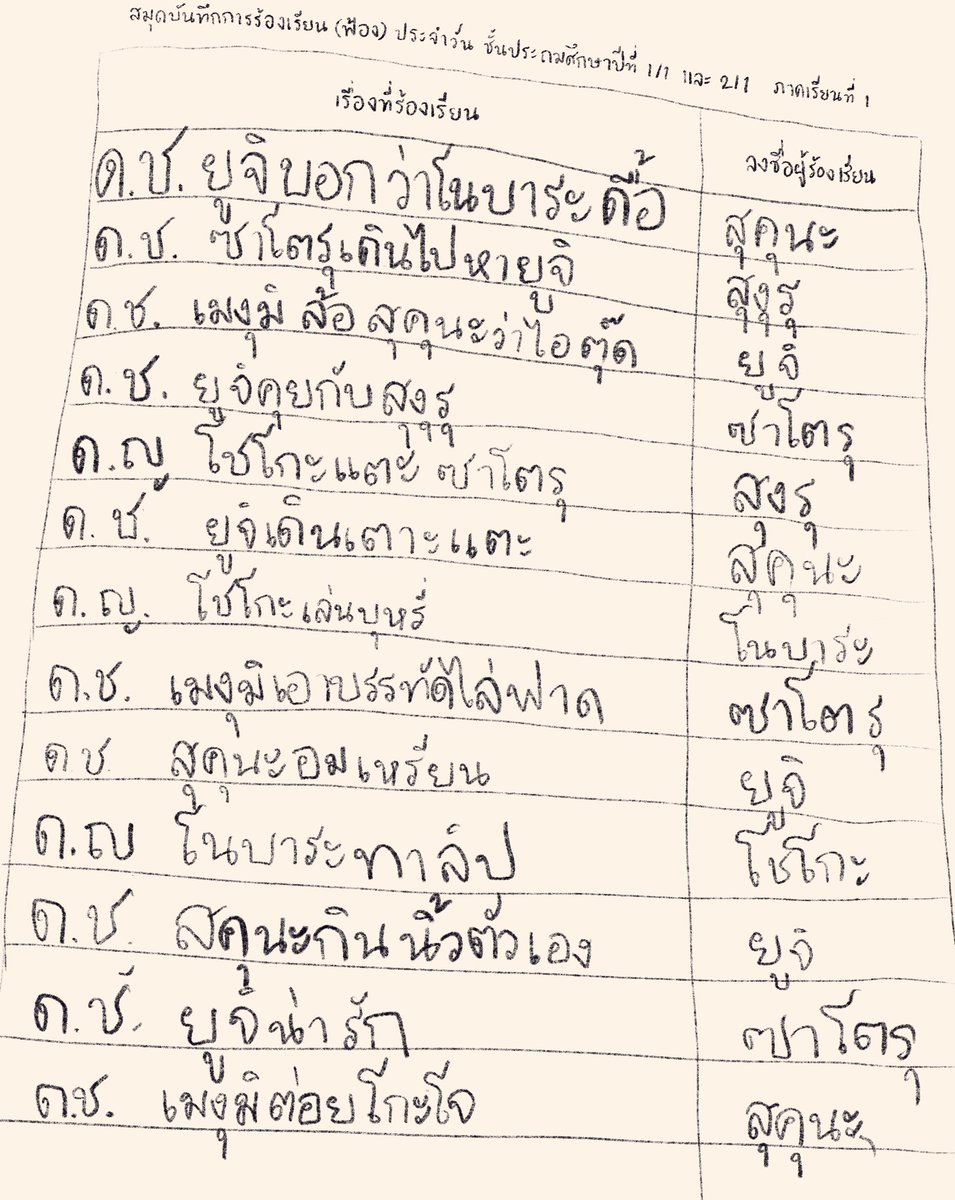 สมุดบันทึกการร้องเรียน (ฟ้อง) ประจำวัน ชั้นประถมศึกษาปีที่ 1/1 และ 2/1 ภาคเรียนที่ 1
เรื่องที่ร้องเรียน ลงชื่อผู้ร้องเรียน
ด.ช. ยูจิบอกว่าโนบาระดื้อ สุคุนะ
ด.ช. ซาโตรุเดินไปหายูจิ สุงุรุ
ด.ช. เมงุมิ ล้อ สุคุนะว่าไอตุ๊ด ยูจิ
ด.ช. ยูจิคุยกับสุงุรุ ซาโตรุ
ด.ญ โชโกะแตะ ซาโตรุ สุงุรุ
ด.ช. ยูจิเดินเตาะแตะ สุคุนะ
ด.ญ. โชโกะเล่นบุหรี่ โนบาระ
ด.ช. เมงุมิเอาบรรทัดไล่ฟาด ซาโตรุ
ด.ช สุคุนะอมเหรียญ ยูจิ
ด.ญ โนบาระทาลิป โชโกะ
ด.ช. สคุนะกินนิ้วตัวเอง ยูจิ
ด.ช. ยูจิน่ารัก ซาโตรุ
ด.ช. เมงุมิต่อยโกะโจ สุคุนะ